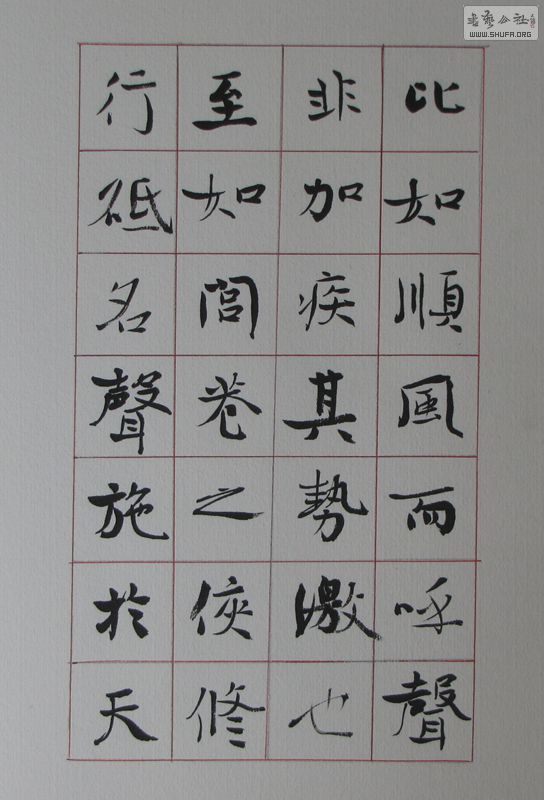 比如順風而呼聲
非加疾其勢激也
至如閭巷之俠修
行砥名聲施於天
書藝公社
WWW.SHUFA.ORG